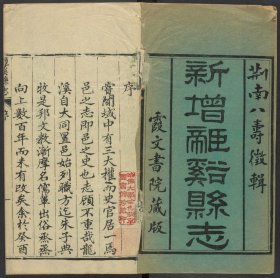 荆南八壽徵輯
新增龍谿縣志
霞文書院藏版
序
嘗聞域中有三大權而史官居一焉
邑之志即邑之史也志顧不重哉龍
溪自大同置邑始列職方迄朱子典
牧是邦文教漸摩名儒輩出俗烝烝
向上數百年而未有改矣余於癸酉